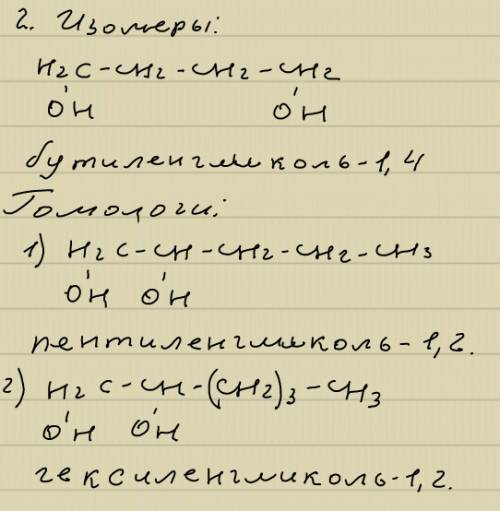 2. Изомеры:
H2C-CH2-CH2-CH2
OH OH
бутиленгликоль-1,4
Гомологи:
1) H2C-CH-CH2-CH2-CH3
OH OH
пентиленгликоль-1,2.
2) H2C-CH-(CH2)3-CH3
OH OH
гексиленгликоль-1,2.